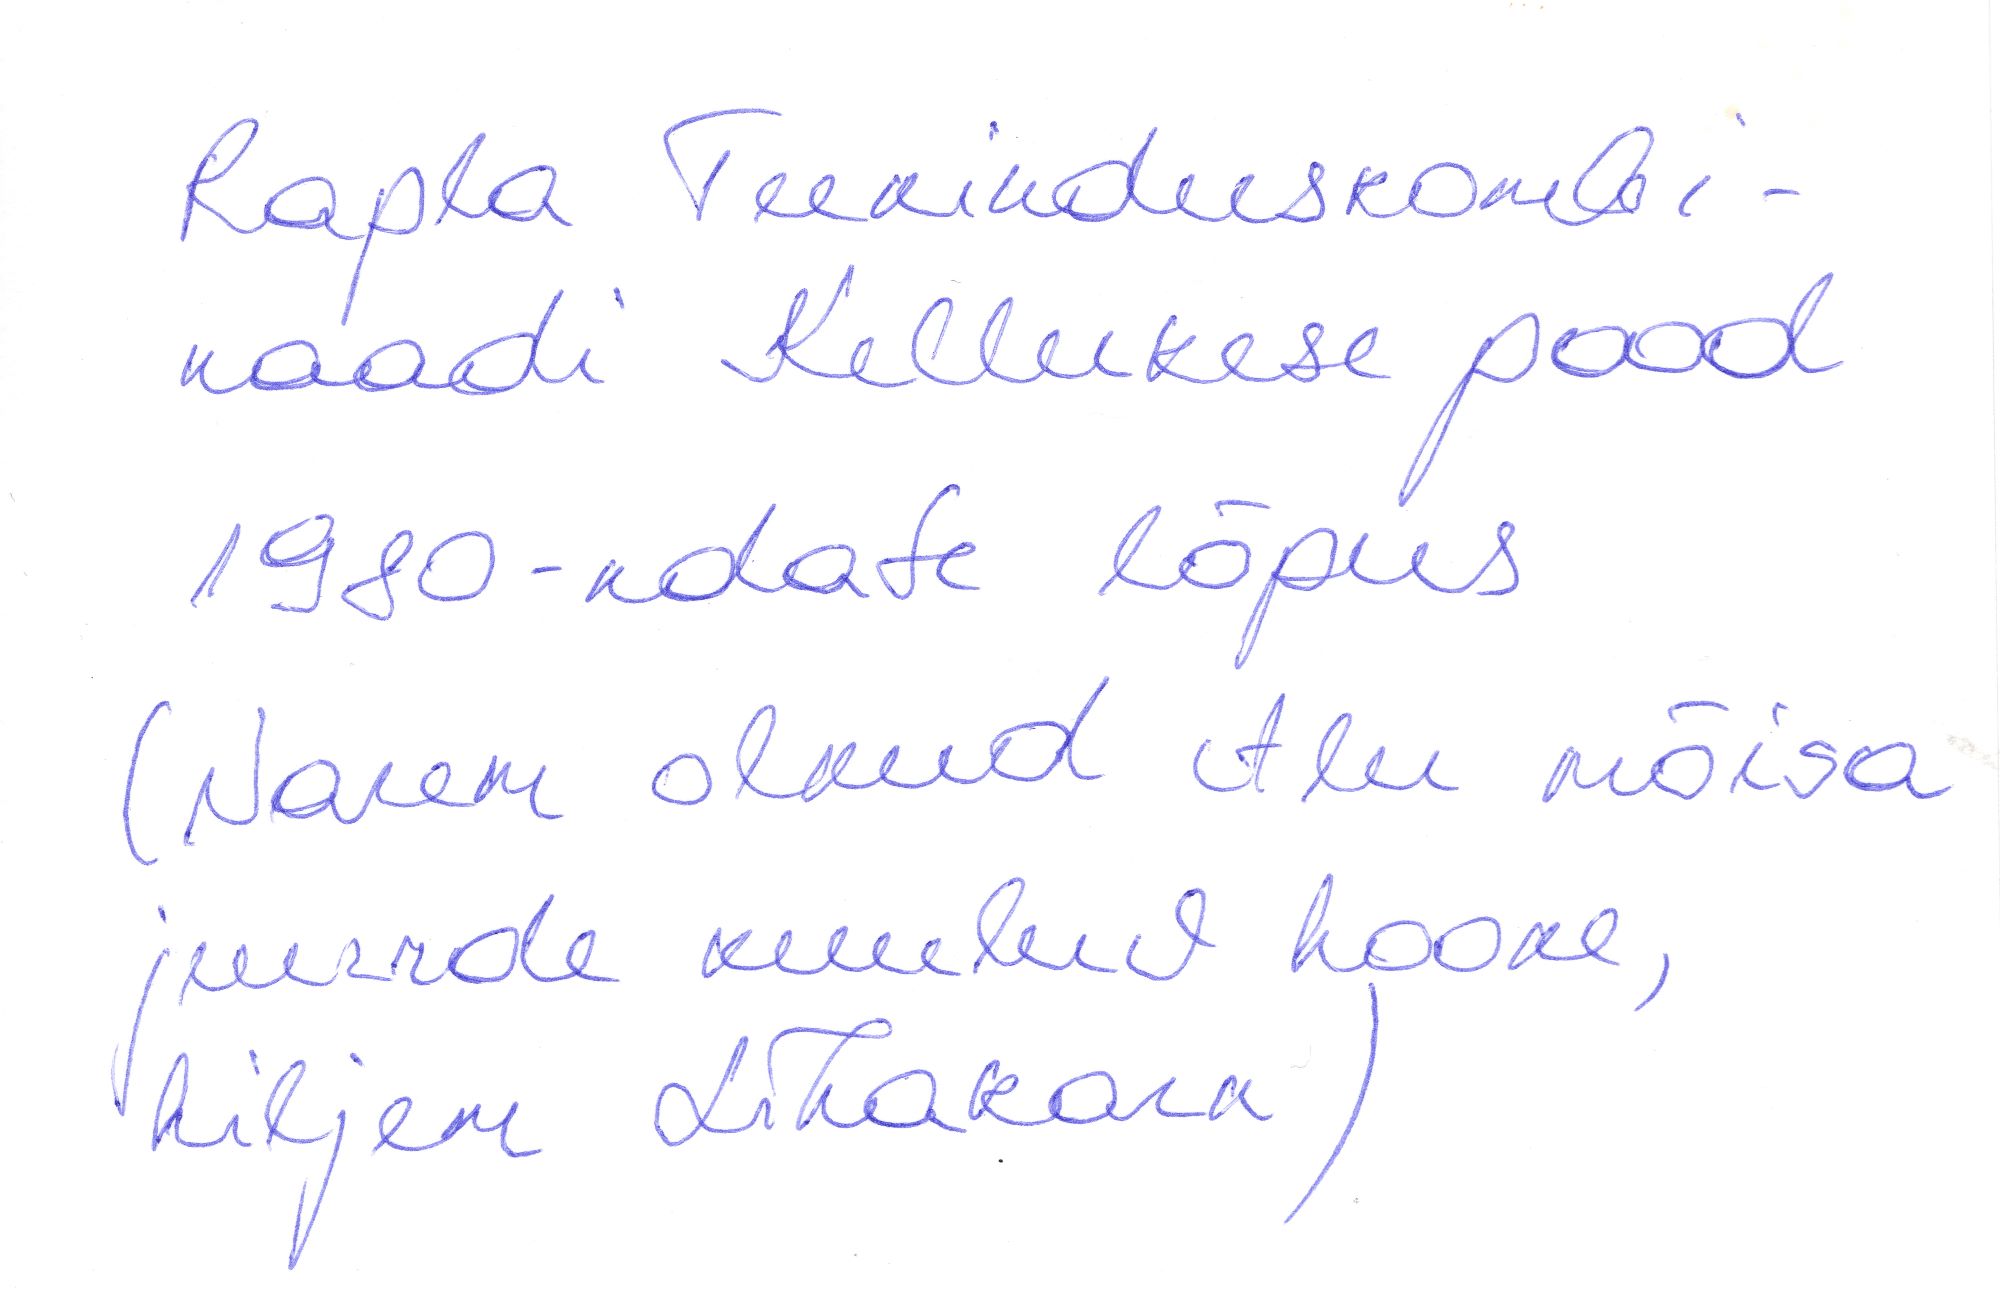 Rapla Teeninduskombi-
naadi Kellukese pood
1980-ndate lõpus
(Varem olnud Alu mõisa
juurde kuuluv hoone,
hiljem Lihakarn)